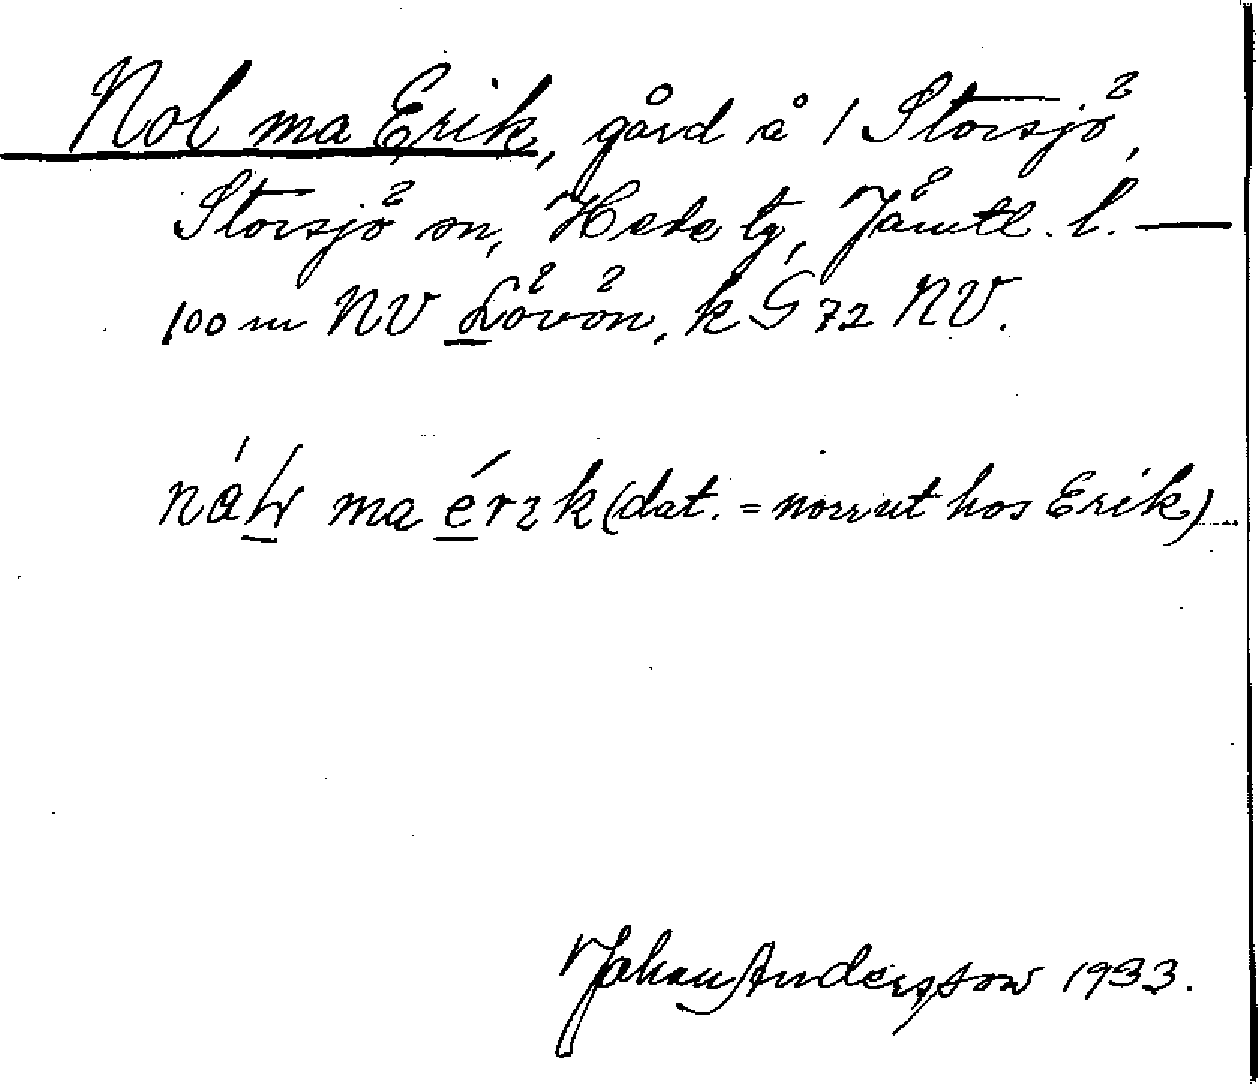 Nol ma Erik, gård å 1 Storsjö,
Storsjö sn, Hede tg, Jämtl. l. —
100 m NV Lövön, k G 72 NV.
ma érık (dat. = norrut hos Erik)
Johan Andersson 1933.